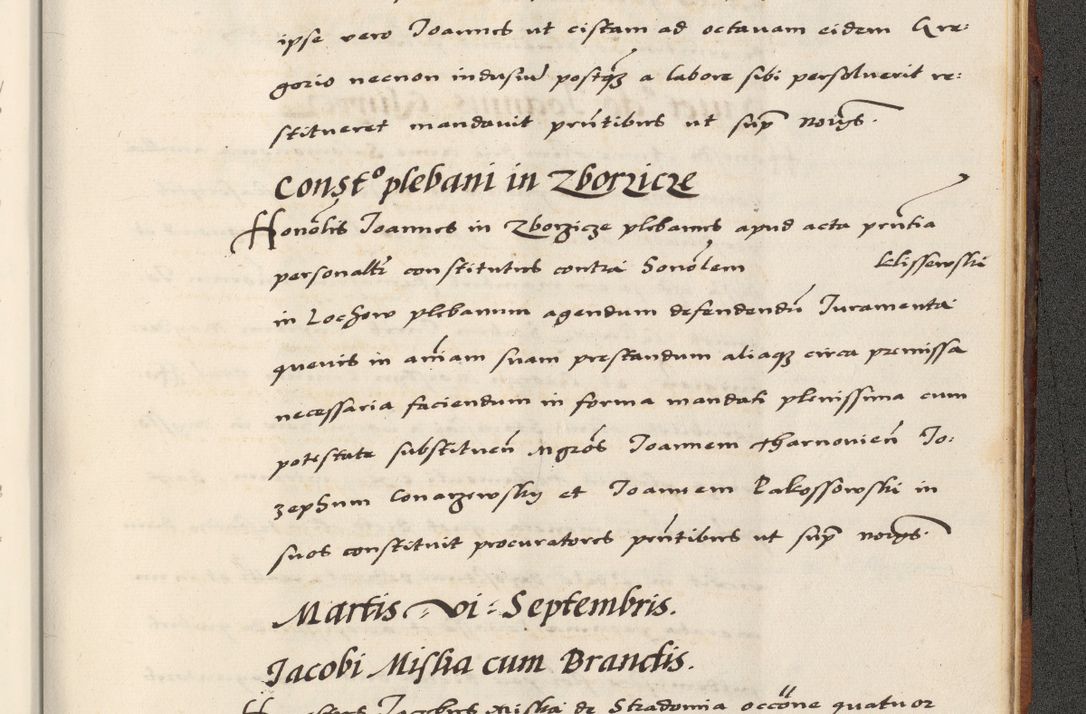 ipse vero Joannes ut cistam ad octavam eidem Gre:
gorio necnon indusiũ postq̃ȝ a labore sibi persolverit re:
stitueret mandavit pr̃ntibus ut sup̃
Const͂º plebani in Zborzicze
Honor̃lis Joannes in Zborzicze plebanus apud acta pr̃ntia
personalr̃ constitutus contra honor̃lem
in Lochow plebanum agendum defendendũ Juramenta
quevis in ãniam suam prestandum aliaqȝ circa premissa
necessaria faciendum in forma mandati plenissima cum
potestate substituen̄ Mgr̃os Joannem Tharnovien̄ Jo:
zephum Conarzewsky et Joannem Rakossowski in
suos constituit procuratores pr̃ntibus ut sup̃
Martis vi: Septembris.
Jacobi Miska cum Brandis.
Jacobus Miska de Stradomia occ̃one quatuor